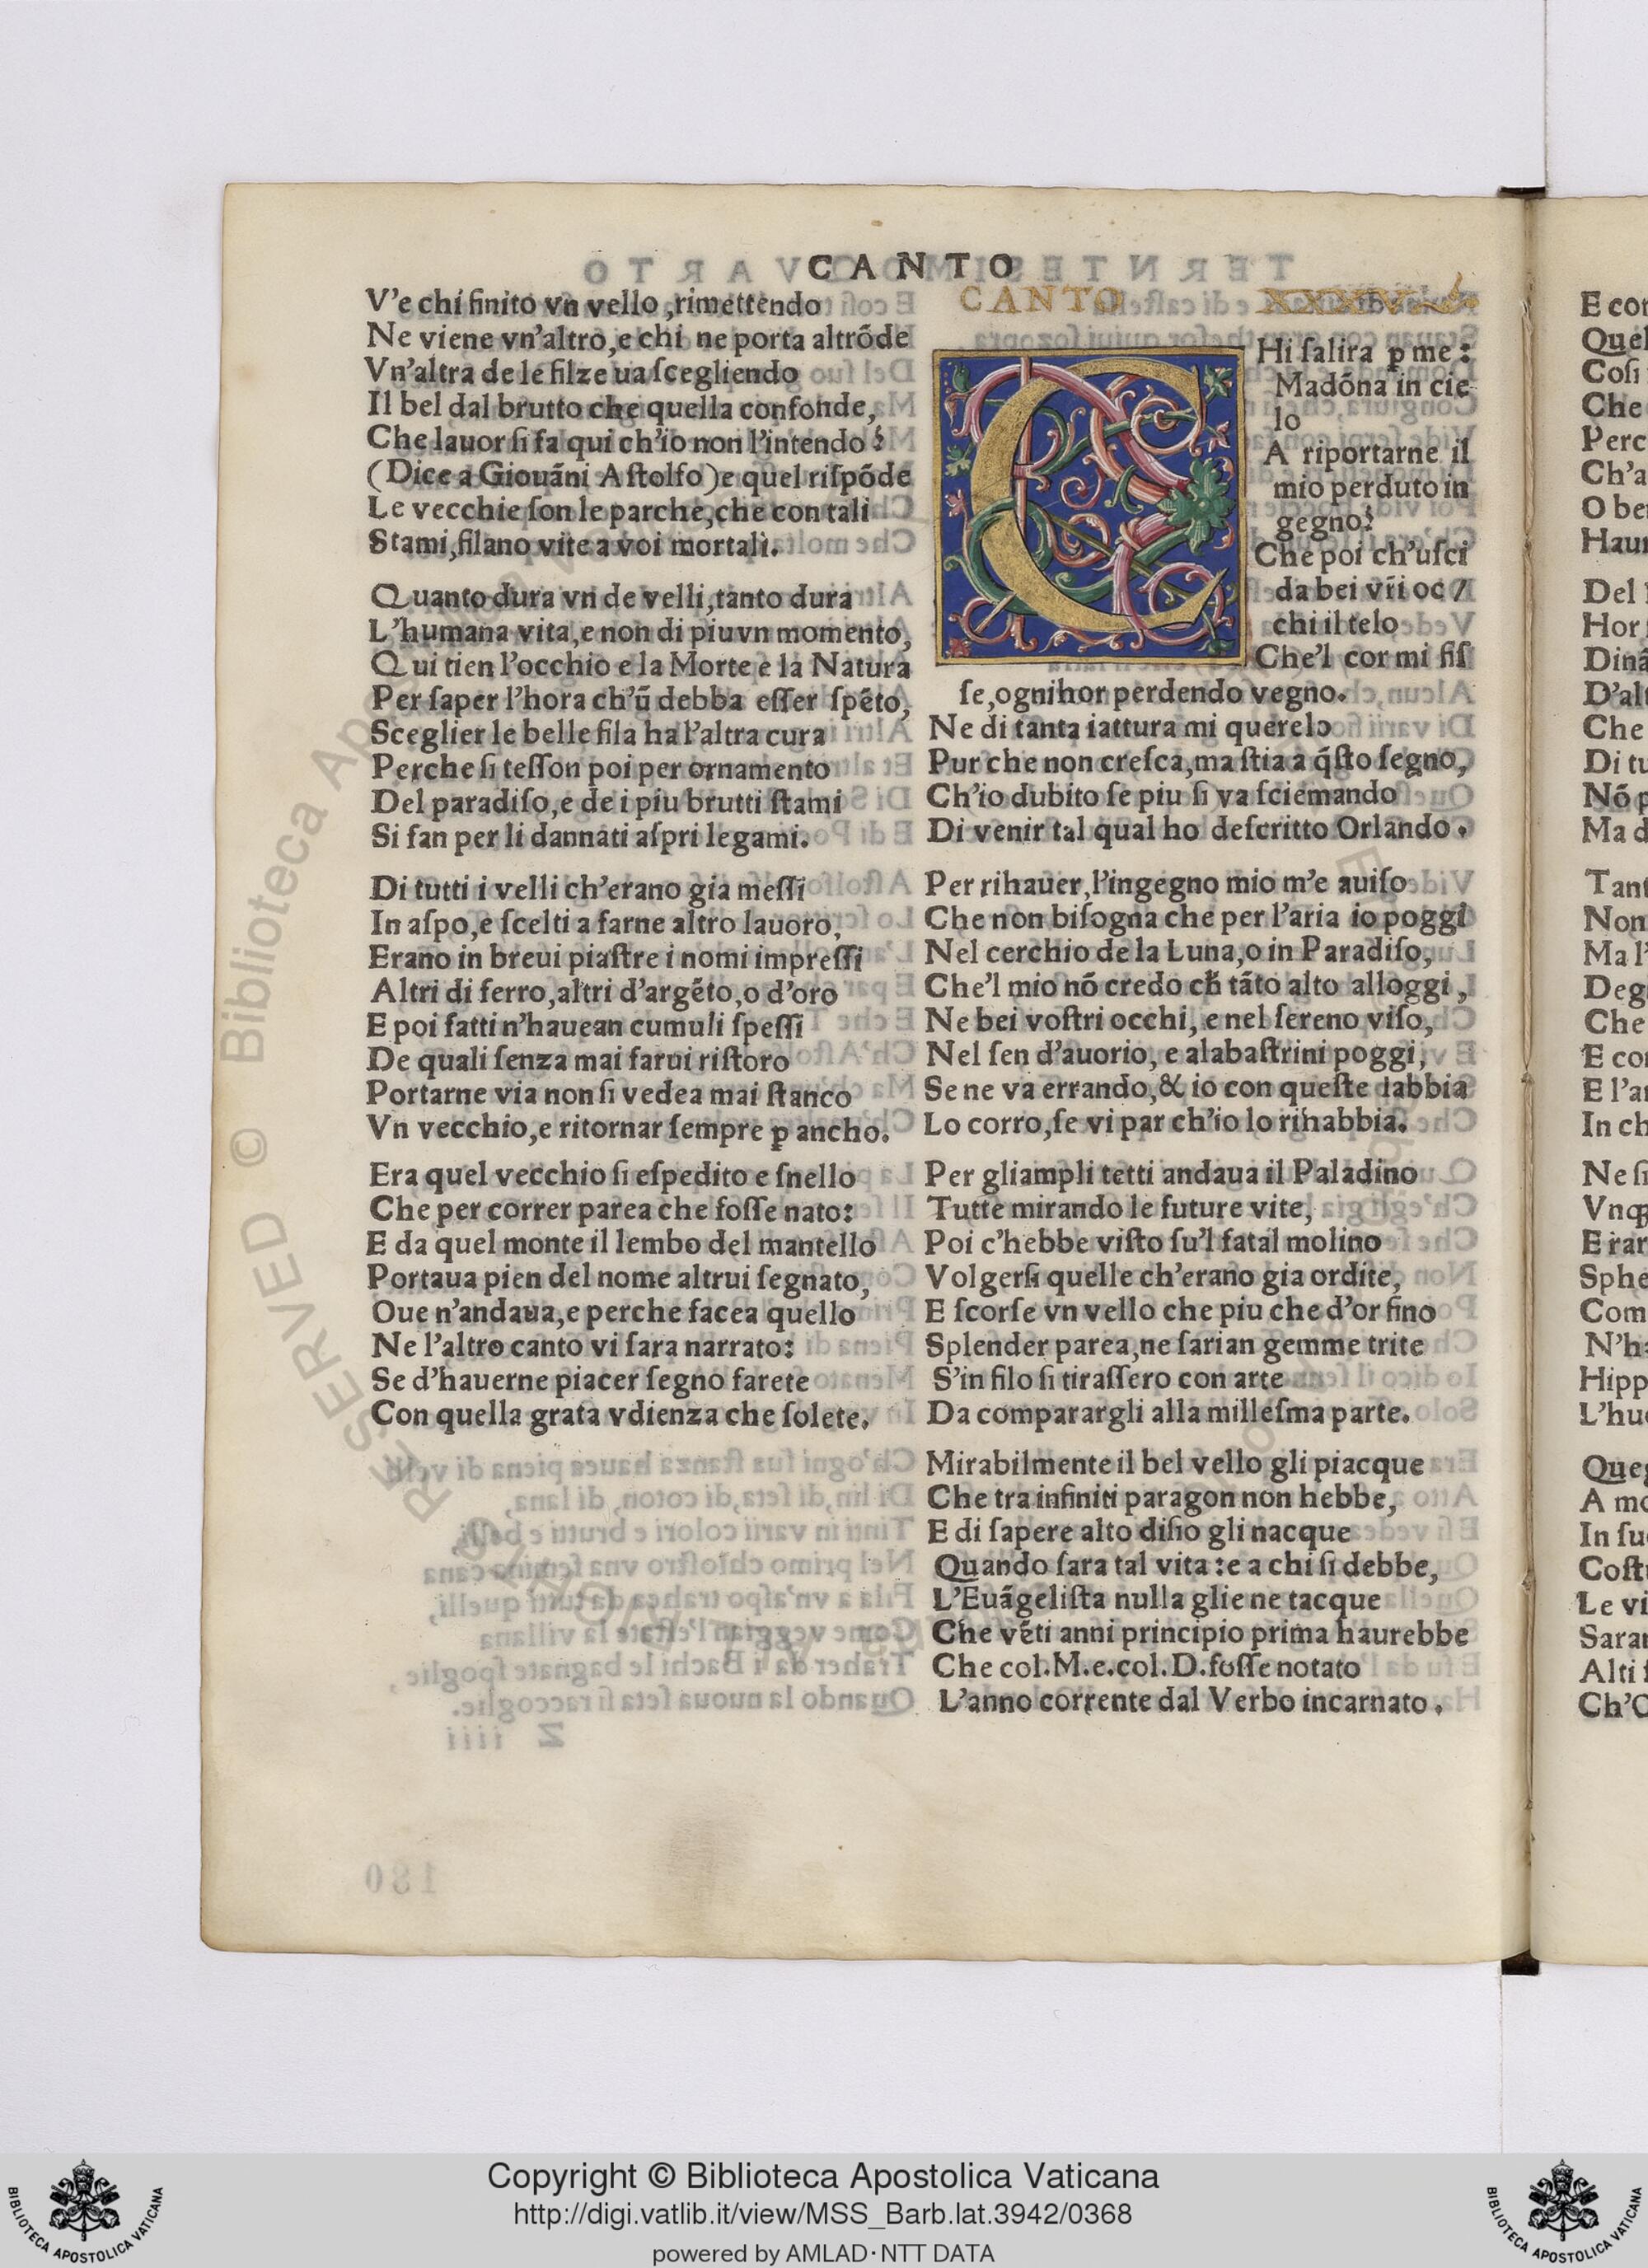 CANTO
V'e chi finito vn vello ,rimettendo
Ne viene vn'altro,e chi ne porta altrõde
Vn'altra de le filze ua ſcegliendo
Il bel dal brutto che quella confonde,
Che lauor ſi fa qui ch'io non l'intendo ?
(Dice a Giouãni Aſtolfo)e quel riſpõde
Le vecchie ſon le parche,che con tali
Stami,filano vite a voi mortali.
Quanto dura vn de velli,tanto dura
L'humana vita,e non di piu vn momento,
Qui tien l'occhio e la Morte e la Natura
Per ſaper l'hora ch'ũ debba eſſer ſpẽto,
Sceglier le belle fila ha l'altra cura
Perche ſi teſſon poi per ornamento
Del paradiſo,e de i piu brutti ſtami
Si fan per li dannati aſpri legami.
Di tutti i velli ch'erano gia meſſi
In aſpo,e ſcelti a farne altro lauoro,
Erano in breui piaſtre i nomi impreſſi
Altri di ferro,altri d'argẽto,o d'oro
E poi fatti n'hauean cumuli ſpeſſi
De quali ſenza mai farui riſtoro
Portarne via non ſi vedea mai ſtanco
Vn vecchio,e ritornar ſempre ꝑ ancho.
Era quel vecchio ſi eſpedito e ſnello
Che per correr parea che foſſe nato:
E da quel monte il lembo del mantello
Portaua pien del nome altrui ſegnato,
Oue n'andaua,e perche facea quello
Ne l'altro canto vi ſara narrato:
Se d'hauerne piacer ſegno farete
Con quella grata vdienza che ſolete.
CANTO XXXV
CHi ſalira ꝑ me :
Madõna in cie
lo
A riportarne il
mio perduto in
gegno?
Che poi ch'uſci
da bei vr̃i oc /
chi il telo
Che'l cor mi fiſ
ſe,ognihor perdendo vegno.
Ne di tanta iattura mi querelo
Pur che non creſca,ma ſtia a q̃ſto ſegno,
Ch'io dubito ſe piu ſi va ſciemando
Di venir tal qual ho deſcritto Orlando .
Per rihauer,l'ingegno mio m'e auiſo
Che non biſogna che per l'aria io poggi
Nel cerchio de la Luna,o in Paradiſo,
Che'l mio nõ credo cħ tãto alto alloggi ,
Ne bei voſtri occhi, e nel ſereno viſo,
Nel ſen d'auorio, e alabaſtrini poggi,
Se ne va errando,& io con queſte labbia
Lo corro,ſe vi par ch'io lo rihabbia.
Per gliampli tetti andaua il Paladino
Tutte mirando le future vite,
Poi c'hebbe viſto ſu'l fatal molino
Volgerſi quelle ch'erano gia ordite,
E ſcorſe vn vello che piu che d'or fino
Splender parea,ne ſarian gemme trite
S'in filo ſi tiraſſero con arte
Da comparargli alla milleſma parte.
Mirabilmente il bel vello gli piacque
Che tra infiniti paragon non hebbe,
E di ſapere alto diſio gli nacque
Quando ſara tal vita :e a chi ſi debbe,
L'Euãgeliſta nulla glie ne tacque
Che vẽti anni principio prima haurebbe
Che col.M.e.col.D.foſſe notato
L'anno corrente dal Verbo incarnato .
E cor
Quel
Coſi
Che
Perc
Ch'a
O be
Haur
Del
Hor
Dinã
D'alt
Che
Di tu
Nõ p
Ma d
Tant
Non
Ma l'
Deg
Che
E cor
E l'ar
In ch
Ne ſi
E rar
Sphe
Com
Hipp
Queg
A mo
In ſu
Coſtu
Le vi
Sarar
Alti
Ch'O
RESERVED © Biblioteca Apostolica Vaticana
Copyright © Biblioteca Apostolica Vaticana
http://digi.vatlib.it/view/MSS_Barb.lat.3942/0368
powered by AMLAD·NTT DATA
BIBLIOTECA APOSTOLICA VATICANA
BIBLIOTECA APOSTOLICA VATICANA